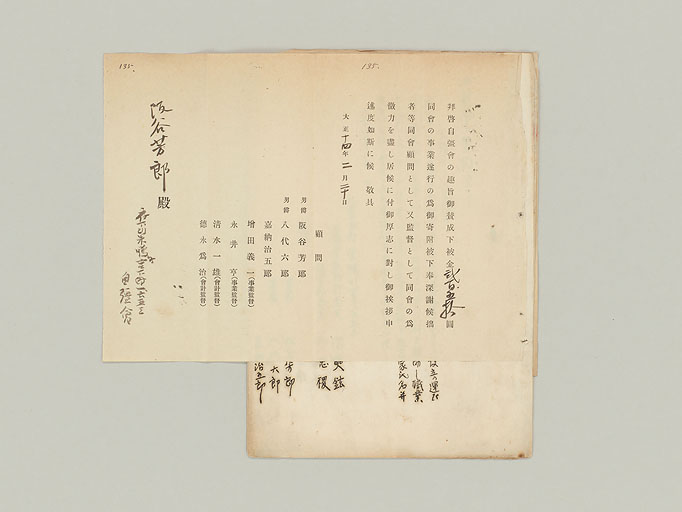 135.
135.
拜啓自彊會の趣旨御贊成下被金貳百五拾圓
同會の事業遂行の爲御寄附被下奉深謝候拙
者等同會顧問として又監督として同會の爲
微力を盡し居候に付御厚志に對し御挨拶申
述度如斯に候 敬具
大正十四年二月二十日
顧問
男爵 阪谷芳郎
男爵 八代六郎
嘉納治五郎
增田義一（事業監督）
永井亨（事業監督）
清水一雄（會計監督）
德永爲治（會計監督）
阪谷芳郎殿
自彊會
職業
芳郎
六郎
治五郎